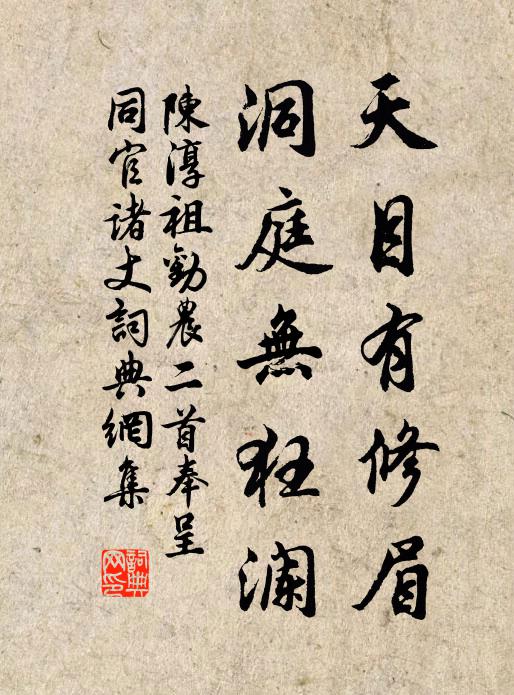 天目有修眉
洞庭無狂澜
陳淳祖勸農二首奉呈
同官诸丈詞典網集
詞典网印